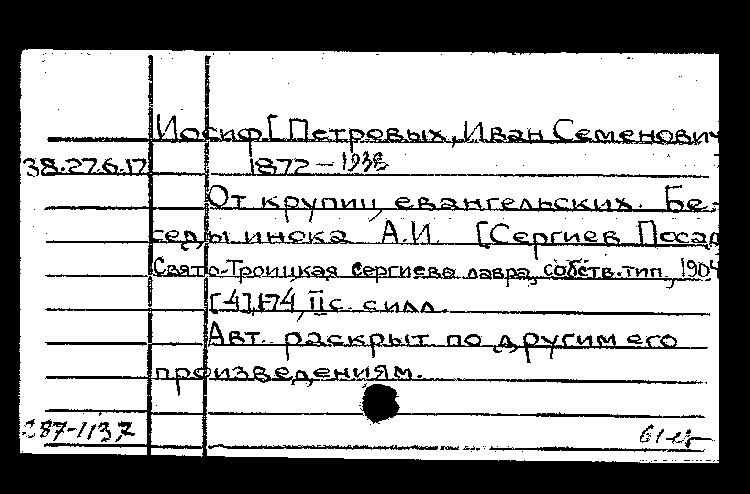 Иосиф [Петровых, Иван Семенович
38.27.6.17 1872-1938
От крупиц евангельских. Бе-
седы инока А.И. [Сергиев Посад
Свято-Троицкая Сергиева лавра, собств. тип., 1904
[4], 174, II с. силл.
Авт. раскрыт по другим его
произведениям.
287-1137